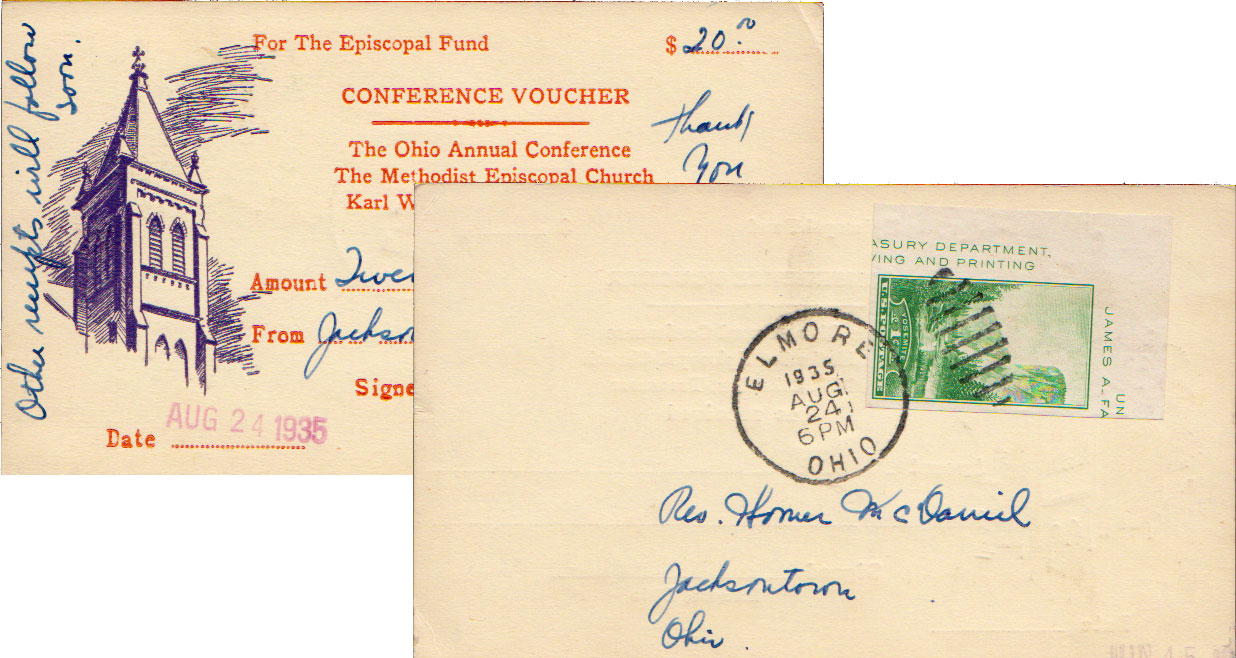 Other receipts will follow
soon.
For The Episcopal Fund
$ 20.00
CONFERENCE VOUCHER
Thank
You
The Ohio Annual Conference
The Methodist Episcopal Church
Karl W
Amount Twe
From Jackso
Signe
Date AUG 24 1935
ASURY DEPARTMENT,
VING AND PRINTING
JAMES A. FA
UN
YOSEMITE
U.S. POSTAGE
ELMORE
1935
AUG
24
6 PM
OHIO
Rev. Homer McDaniel
Jacksontown
Ohio.